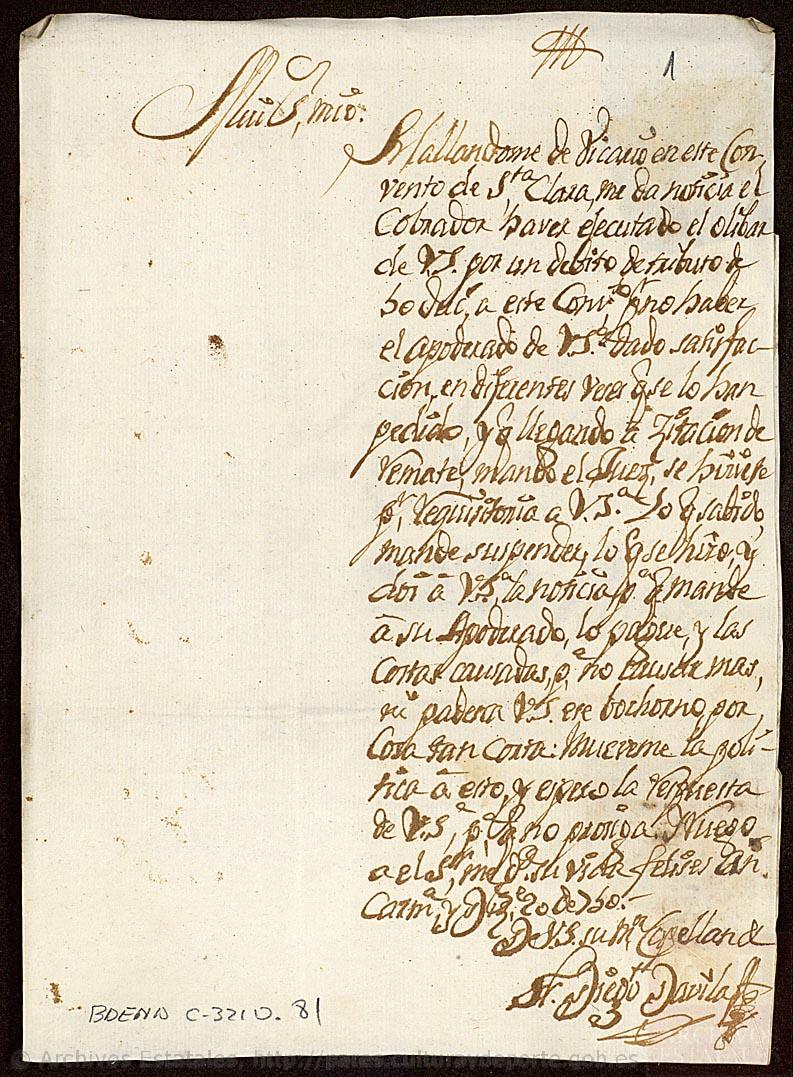 1
Mui S.r mio.
Hallandome de Vicario en este Con-
vento de S.ta Clara, me da noticia el
Cobrador haver ejecutado el olibar
de V.S. por un debito de tributo de
a este Conv.to p.r no haber
el apoderado de V.S.a dado satisfac-
cion, en diferentes veces q se lo han
pedido, y q llegando â Zitacion de
remate, mando el Juez, se hiciese
p.r requisitoria a V.S.a Lo q sabido,
mande suspender, lo q se hizo, y
doi â V.S.a la noticia p.a q mande
â su Apoderado, lo pague, y las
Costas causadas, p.a no causar mas,
ni padezca V.S. ese bochorno, por
Cosa tan Corta: Mueveme la poli-
tica â esto, y espero la respuesta
de V.S.a, p.a q no prosiga. Ruego
a el S.or, me g.e su vida felises añ.s
Carm.a, y 20 de 760.-
D V.S. su m.r Capellan &
Fr. Diego Davila
BDENA C-321 D. 81
© Archivos Estatales, http://pares.culturaydeporte.gob.es